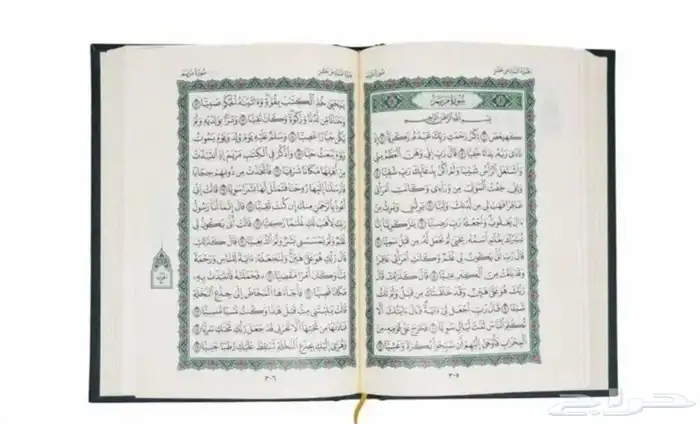 الجزء السادس عشر
سورة مريم
سُورَةُ مَرْيَمَ
بِسْمِ اللَّهِ الرَّحْمَٰنِ الرَّحِيمِ
كهيعص ١ ذِكْرُ رَحْمَتِ رَبِّكَ عَبْدَهُ زَكَرِيَّا ٢ إِذْ
نَادَىٰ رَبَّهُ نِدَاءً خَفِيًّا ٣ قَالَ رَبِّ إِنِّي وَهَنَ الْعَظْمُ مِنِّي
وَاشْتَعَلَ الرَّأْسُ شَيْبًا وَلَمْ أَكُن بِدُعَائِكَ رَبِّ شَقِيًّا ٤
وَإِنِّي خِفْتُ الْمَوَالِيَ مِن وَرَاءِي وَكَانَتِ امْرَأَتِي
عَاقِرًا فَهَبْ لِي مِن لَّدُنكَ وَلِيًّا ٥ يَرِثُنِي وَيَرِثُ مِنْ
ءَالِ يَعْقُوبَ وَاجْعَلْهُ رَبِّ رَضِيًّا ٦ يَٰزَكَرِيَّا إِنَّا
نُبَشِّرُكَ بِغُلَٰمٍ اسْمُهُ يَحْيَىٰ لَمْ نَجْعَل لَّهُ مِن قَبْلُ سَمِيًّا ٧
قَالَ رَبِّ أَنَّىٰ يَكُونُ لِي غُلَٰمٌ وَكَانَتِ امْرَأَتِي عَاقِرًا
وَقَدْ بَلَغْتُ مِنَ الْكِبَرِ عِتِيًّا ٨ قَالَ كَذَٰلِكَ قَالَ
رَبُّكَ هُوَ عَلَيَّ هَيِّنٌ وَقَدْ خَلَقْتُكَ مِن قَبْلُ وَلَمْ تَكُ
شَيْئًا ٩ قَالَ رَبِّ اجْعَل لِّي ءَايَةً قَالَ ءَايَتُكَ أَلَّا
تُكَلِّمَ النَّاسَ ثَلَٰثَ لَيَالٍ سَوِيًّا ١٠ فَخَرَجَ عَلَىٰ قَوْمِهِ مِنَ
الْمِحْرَابِ فَأَوْحَىٰ إِلَيْهِمْ أَن سَبِّحُوا بُكْرَةً وَعَشِيًّا ١١
٣٠٥
الجزء السادس عشر
سورة مريم
يَٰيَحْيَىٰ خُذِ الْكِتَٰبَ بِقُوَّةٍ وَءَاتَيْنَٰهُ الْحُكْمَ صَبِيًّا ١٢
وَحَنَانًا مِّن لَّدُنَّا وَزَكَوٰةً وَكَانَ تَقِيًّا ١٣ وَبَرًّا بِوَٰلِدَيْهِ وَلَمْ
يَكُن جَبَّارًا عَصِيًّا ١٤ وَسَلَٰمٌ عَلَيْهِ يَوْمَ وُلِدَ وَيَوْمَ يَمُوتُ
وَيَوْمَ يُبْعَثُ حَيًّا ١٥ وَاذْكُرْ فِي الْكِتَٰبِ مَرْيَمَ إِذِ انتَبَذَتْ
مِنْ أَهْلِهَا مَكَانًا شَرْقِيًّا ١٦ فَاتَّخَذَتْ مِن دُونِهِمْ حِجَابًا
فَأَرْسَلْنَا إِلَيْهَا رُوحَنَا فَتَمَثَّلَ لَهَا بَشَرًا سَوِيًّا ١٧ قَالَتْ إِنِّي
أَعُوذُ بِالرَّحْمَٰنِ مِنكَ إِن كُنتَ تَقِيًّا ١٨ قَالَ إِنَّمَا أَنَا رَسُولُ
رَبِّكِ لِأَهَبَ لَكِ غُلَٰمًا زَكِيًّا ١٩ قَالَتْ أَنَّىٰ يَكُونُ لِي
غُلَٰمٌ وَلَمْ يَمْسَسْنِي بَشَرٌ وَلَمْ أَكُ بَغِيًّا ٢٠ قَالَ كَذَٰلِكِ
قَالَ رَبُّكِ هُوَ عَلَيَّ هَيِّنٌ وَلِنَجْعَلَهُ ءَايَةً لِّلنَّاسِ وَرَحْمَةً
مِّنَّا وَكَانَ أَمْرًا مَّقْضِيًّا ٢١ فَحَمَلَتْهُ فَانتَبَذَتْ بِهِ
مَكَانًا قَصِيًّا ٢٢ فَأَجَاءَهَا الْمَخَاضُ إِلَىٰ جِذْعِ النَّخْلَةِ
قَالَتْ يَٰلَيْتَنِي مِتُّ قَبْلَ هَٰذَا وَكُنتُ نَسْيًا مَّنسِيًّا ٢٣
فَنَادَىٰهَا مِن تَحْتِهَا أَلَّا تَحْزَنِي قَدْ جَعَلَ رَبُّكِ تَحْتَكِ سَرِيًّا ٢٤
وَهُزِّي إِلَيْكِ بِجِذْعِ النَّخْلَةِ تُسَٰقِطْ عَلَيْكِ رُطَبًا جَنِيًّا ٢٥
٣٠٦
حراج